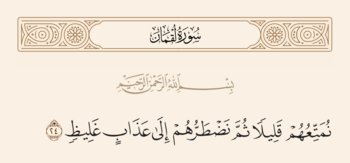 سُورَةُ لُقْمَان
بِسْمِ اللَّهِ الرَّحْمَٰنِ الرَّحِيمِ
نُمَتِّعُهُمْ قَلِيلًا ثُمَّ نَضْطَرُّهُمْ إِلَىٰ عَذَابٍ غَلِيظٍ ٢٤